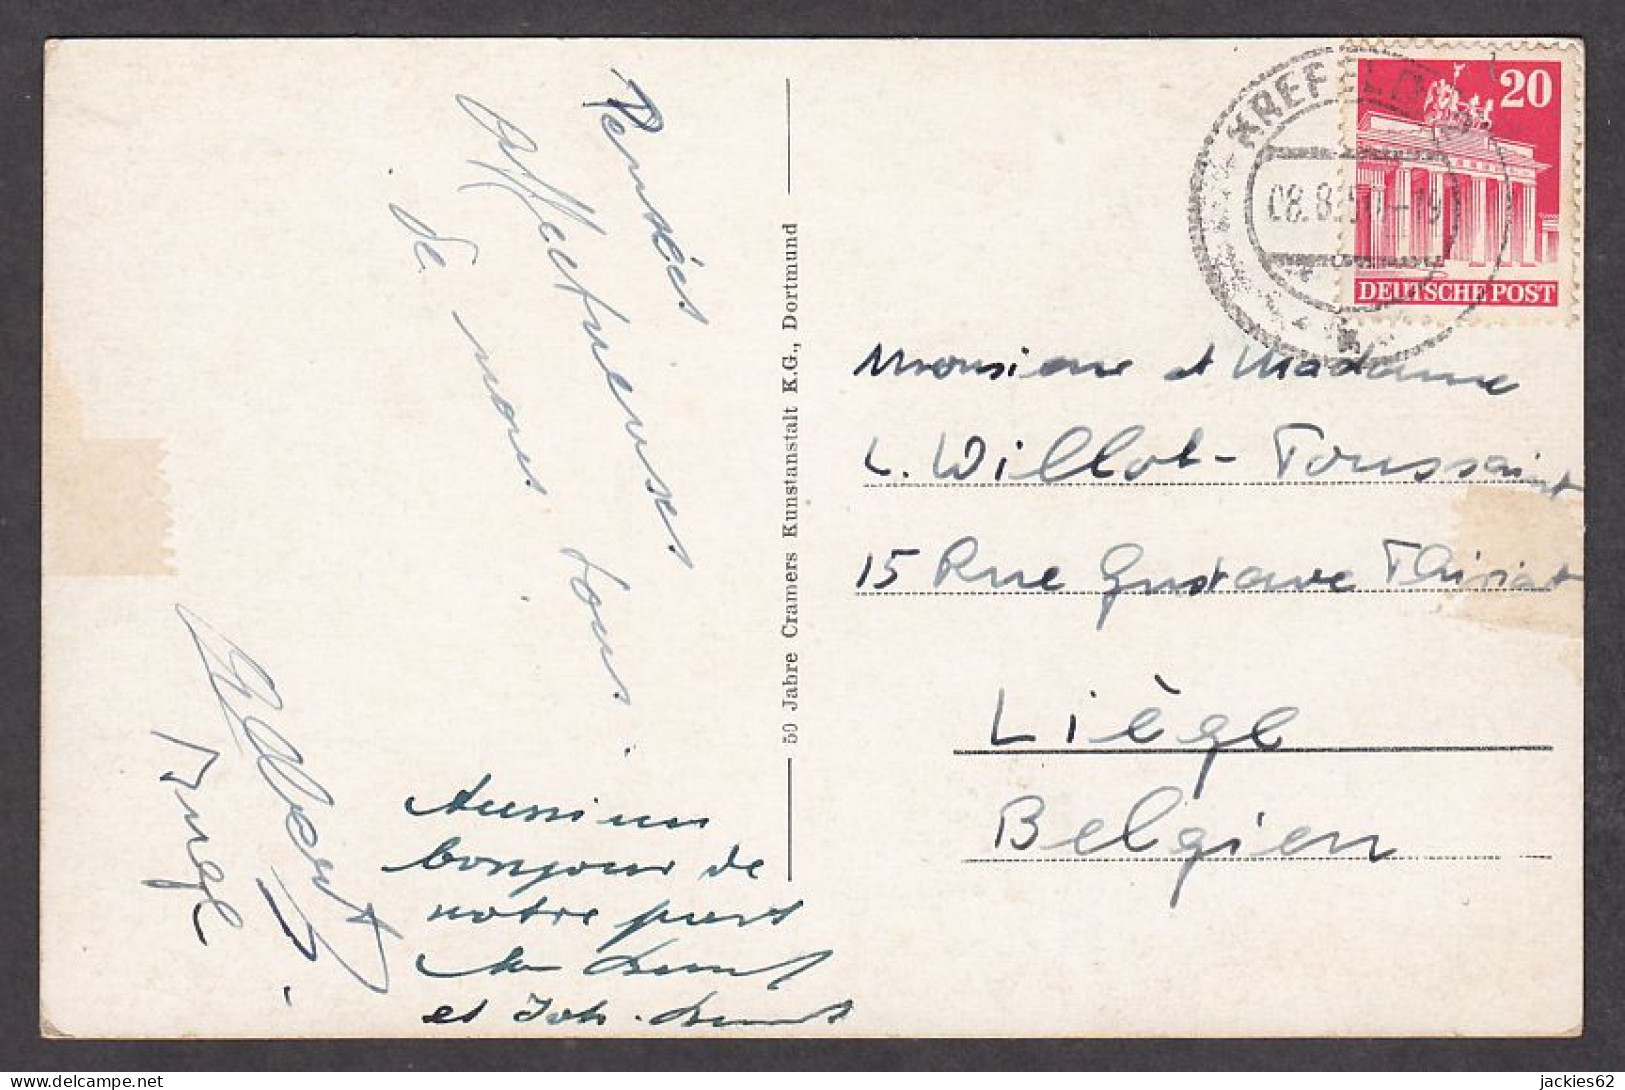 Pensées
affectueuses
de nous tous.
Aussi un
bonjour de
notre part
et Joh.
50 Jahre Cramers Kunstanstalt K.G., Dortmund
KREFELD
08.8.50-19
20
DEUTSCHE POST
Monsieur et Madame
L. Willot-Toussaint
15 Rue Gustave Thiriart
Liège
Belgien
jackies62